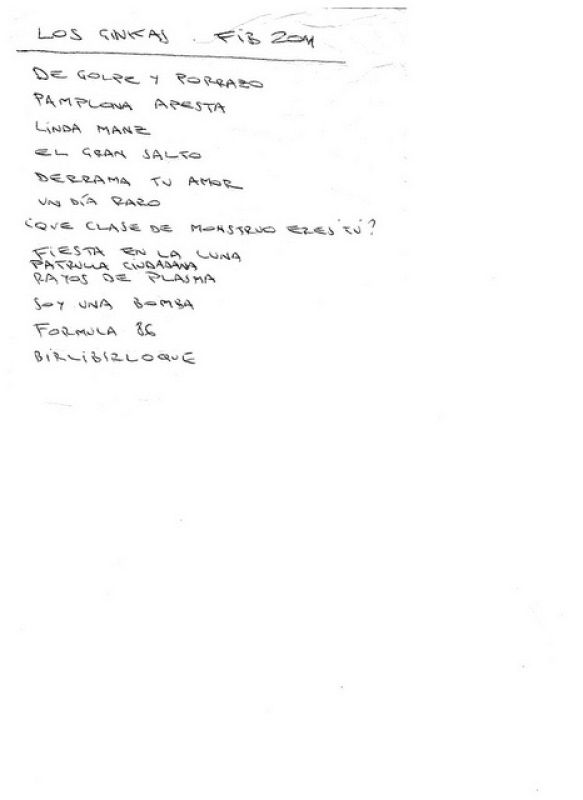 LOS GINKAS . FIB 2011
DE GOLPE Y PORRAZO
PAMPLONA APESTA
LINDA MANZ
EL GRAN SALTO
DERRAMA TU AMOR
UN DÍA RARO
¿QUE CLASE DE MONSTRUO ERES TÚ?
FIESTA EN LA LUNA
PATRULLA CIUDADANA
RAYOS DE PLASMA
SOY UNA BOMBA
FORMULA 86
BIRLIBIRLOQUE